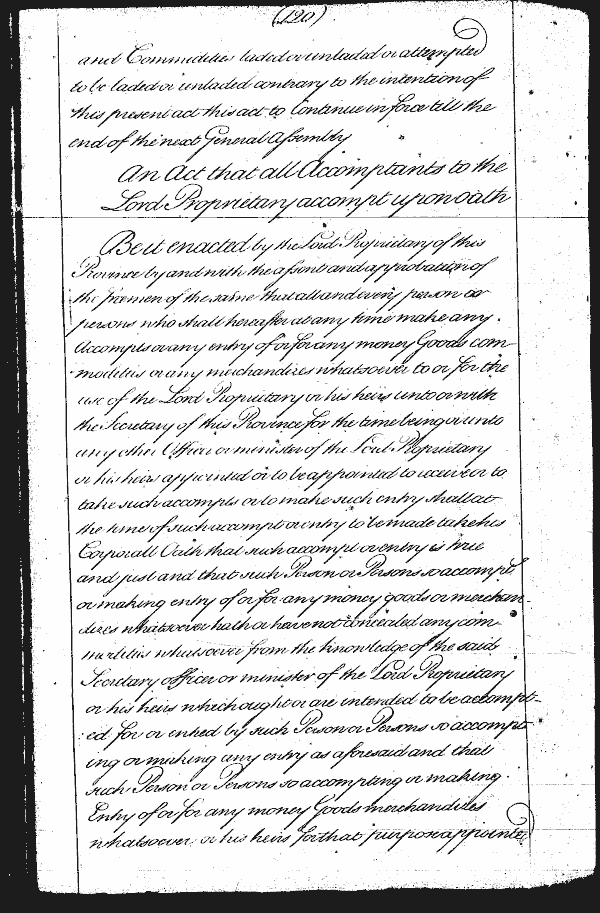 (120)
and Commodities laded or unladed or attempted
to be laded or unladed contrary to the intention of
this present act this act to Continue in force till the
end of the next General Assembly
An Act that all Accomptants to the
Lord Proprietary accompt upon oath
Be it enacted by the Lord Proprietary of this
Province by and with the assent and approbation of
the freemen of the same that all and every person or
persons who shall hereafter at any time make any
Accompts or any entry of or for any money Goods com-
modities or any merchandizes whatsoever to or for the
use of the Lord Proprietary or his heirs unto or with
the Secretary of this Province for the time being or unto
any other Officer or minister of the Lord Proprietary
or his heirs appointed or to be appointed to receive or to
take such accompts or to make such entry shall at
the time of such accompt or entry to be made take his
Corporall Oath that such accompt or entry is true
and just and that such Person or Persons so accompt.
or making entry of or for any money goods or merchan-
dizes whatsoever hath or have not concealed any com-
modities whatsoever from the knowledge of the said
Secretary officer or minister of the Lord Proprietary
or his heirs which ought or are intended to be accompt-
ed for or entred by such Person or Persons so accompt-
ing or making any entry as aforesaid and that
such Person or Persons so accompting or making
Entry of or for any money Goods merchandizes
whatsoever or his heirs for that purpose appointed